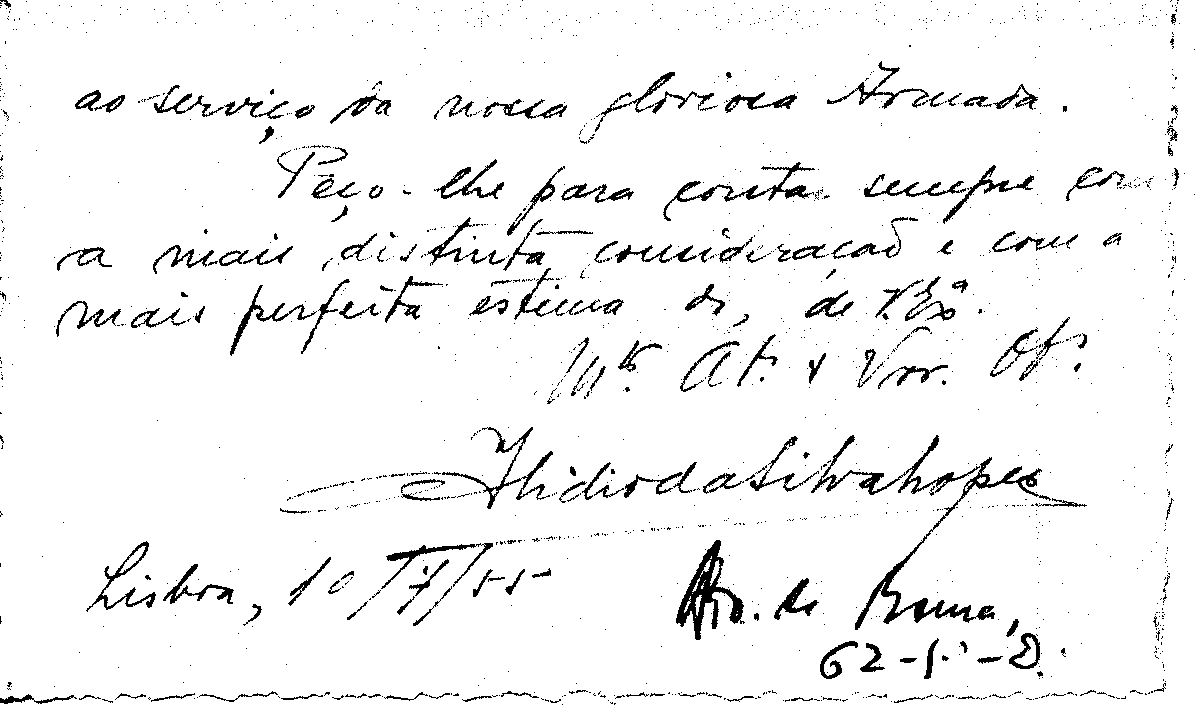 ao serviço da nossa gloriosa Armada.
Peço-lhe para contar sempre com
a mais distinta consideração e com a
mais perfeita estima do, de V. Exª.
Mto. At. e Vor. Of.
Ilidio da Silva Lopes
Lisboa, 10/7/55
Av. de Roma,
62-1.º-D.